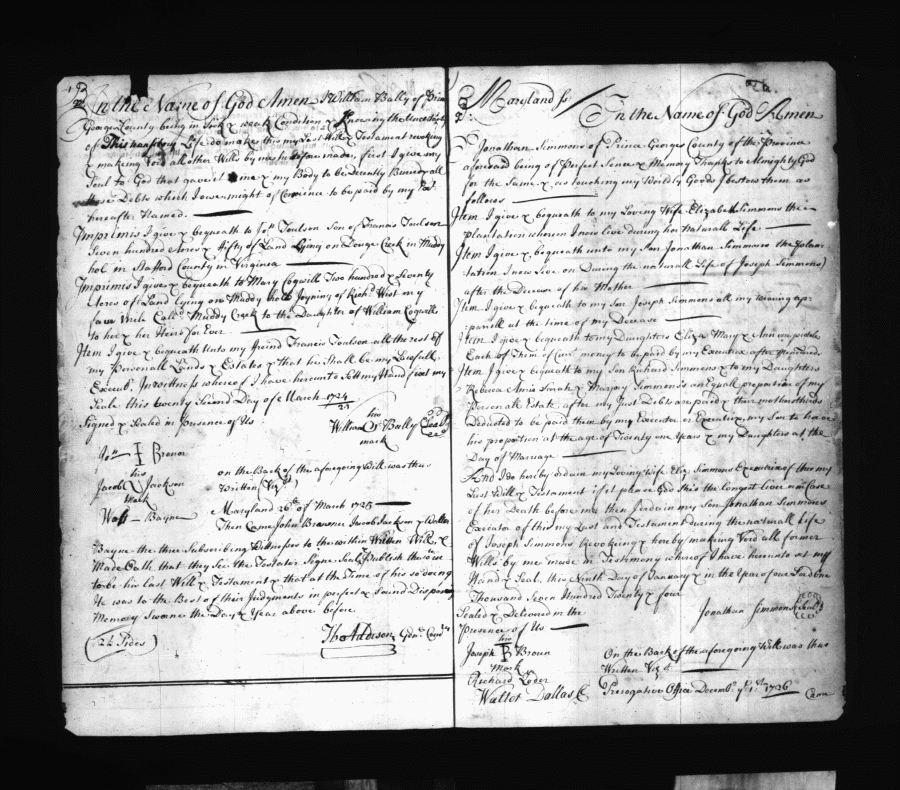 In the Name of God Amen I William Bally of Prin
Georges County being in Sick & weak Condition & knowing the uncertainty
of This transitory Life do make this my Last Will & Testament revoking
& making Void all other Wills by me heretofore made, first I give my
Soul to God that gave it me & my Body to be Decently Buried & all
those Debts which I owe in right of Concience to be paid by my Exr.
hereafter Named.
Imprimis I give & bequeath to Jos. Toulson Son of Francis Toulson
Seven hundred Acres & fifty of Land Lying on Creek in Muddy
hol in Stafford County in Virginia
Imprimis I give & bequeath to Mary Cogwill Two hundred & Seventy
Acres of Land lying on Muddy hole Joyning of Richd. West my
saw mile Calld. Muddy Creek to the Daughter of William Cogwill
to her & her Heirs for Ever.
Item I give & bequeath unto my friend Francis Toulson all the rest of
my Personall Lands & Estates & that he Shall be my Lawfull
Execut. In witness whereof I have hereunto Sett my Hand & fixt my
Seale this twenty Second Day of March 1724/25
Signed & Sealed in presence of Us
his
William Bally Seal
mark
Jon. Brown
his
Jacob Jackson
mark
Walt Bayne
on the Back of the aforegoing Will was thus
Written (Vizt)
Maryland 26th. of March 1725
Then Came John Browner Jacob Jackson & Walter
Bayne the three Subscribing Witnesses to the within Written Will, &
Made Oath that they See the Testator Signe Seal & Publish the within
to be his last Will & Testament & that at the Time of his so doing
He was to the Best of their Judgments in perfect & Sound Disposing
Memory Sworne the Day & Year above before
Tho Addison
(2k Sides)
Maryland ss
In the Name of God Amen
I Jonathan Simmons of Prince Georges County of the Province
aforesd. being of Perfect Sence & Memory Thanks to Almighty God
for the Same & as touching my Worldly Goods I bestow them as
follows
Item I give & bequeath to my Loving Wife Elizabeth Simmons the
plantation wheron I now live during her Naturall Life
Item I give & bequeath unto my Son Jonathan Simmons the plan
tation I now Live on During the naturall Life of Joseph Simmons
after the Decease of his Mother
Item I give & bequeath to my Son Joseph Simmons all my wearing ap-
parrill at the time of my Decease
Item I give & bequeath to my Daughters Eliza Mary & Ann
Each of Them of money to be paid by my Executrix after
Item I give & bequeath to my Son Richard Simmons & to my Daughters
Rebecca Amie Sarah & Margry Simmons an Equall proportion of my
Personall Estate after my Just Debts are paid & their mothers thirds
Deducted to be paid them by my Executor or Executrix, my Son to have
his proportion at the age of Twenty one Years & my Daughters at the
Day of Marriage
And I do hereby ordain my Loving Wife Eliz. Simmons Executrix of this my
Last Will & Testament if it please God She is the longest liver in Case
of her Death before me then I ordain my Son Jonathan Simmons
Executor of this my Last and Testament during the naturall Life
of Joseph Simmons Revoking & hereby making Void all former
Wills by me made in Testimony whereof I have hereunto set my
Hand & Seal, this Ninth Day of January & in the Year of our Lord One
Thousand Seven Hundred Twenty & four
Sealed & Delivered in the
Presence of Us
Jonathan Simmons Seal
his
Joseph B Brown
mark
Richard Loder
Walter Dallas
On the Back of the aforegoing Will was thus
Written Vizt.
Prerogative Office Decembr. ye 1st. 1726